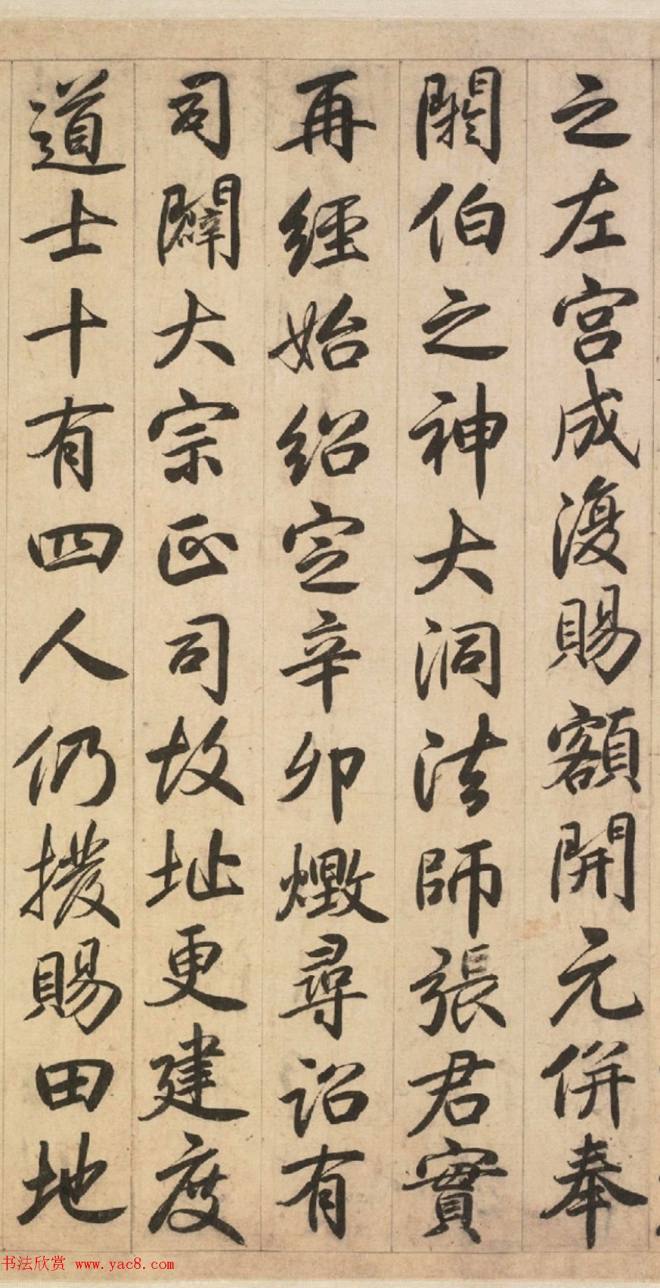 之左宮成復賜額開元併奉
閼伯之神大洞法師張君實
再經始紹定辛卯燬尋詔有
司闢大宗正司故址更建度
道士十有四人仍撥賜田地
书法欣赏 www.yac8.com